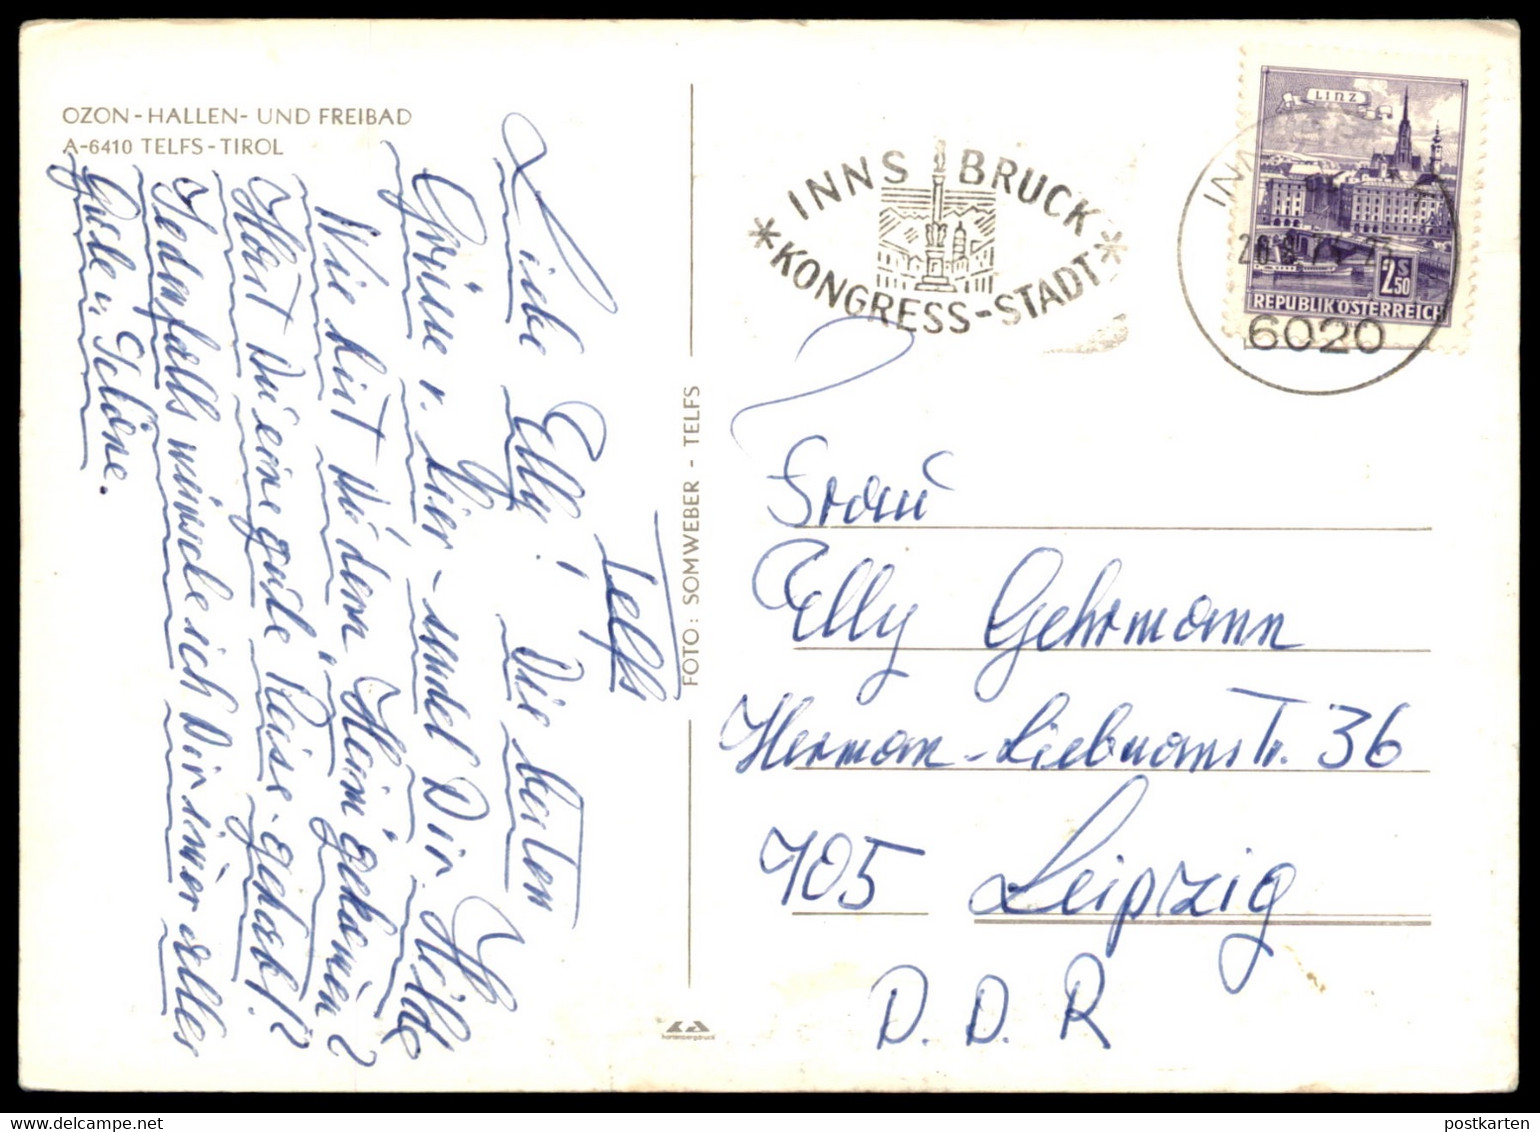 OZON-HALLEN- UND FREIBAD
A-6410 TELFS-TIROL
Telfs
Liebe Elly! Die besten
Grüsse v. hier - sendet Dir Hilde
Wie bist Du denn Heim gekommen?
Hast Du eine gute Reise gehabt?
Jedenfalls wünsche ich Dir immer alles
Gute u. Schöne.
FOTO: SOMWEBER - TELFS
INNSBRUCK
KONGRESS-STADT
LINZ
2 S 50
REPUBLIK ÖSTERREICH
6020
Frau
Elly Gehrmann
Herman-Liebmanstr. 36
705 Leipzig
D. D. R
postkarten